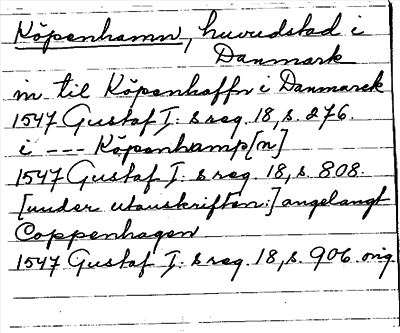 Köpenhamn, huvudstad i
Danmark
in til Köpenhaffn i Danmarck
1547 Gustaf I:s reg. 18, s. 276.
i --- Köpenhamp[n]
1547 Gustaf I:s reg. 18, s. 808.
[under utanskriften:] angelangt
Coppenhagen
1547 Gustaf I:s reg. 18, s. 906 orig.